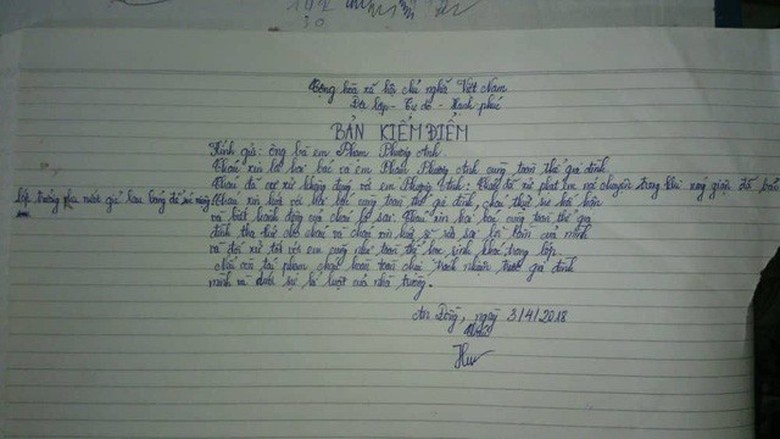 192
30
Cộng hòa xã hội chủ nghĩa Việt Nam
Độc lập - Tự do - Hạnh phúc
BẢN KIỂM ĐIỂM
Kính gửi: ông bà em Phạm Phương Anh.
Cháu xin lỗi hai bác và em Phạm Phương Anh cùng toàn thể gia đình
Cháu đã cư xử không đúng với em Phương Anh: Cháu đã xử phạt em nói chuyện trong khi nóng giận đã bảo
lớp trưởng pha nước giẻ lau bảng để súc miệng. Cháu xin hứa với hai bác cùng toàn thể gia đình, cháu thực sự hối hận
và biết hành động của cháu là sai. Cháu xin hai bác cùng toàn thể gia
đình tha thứ cho cháu và cháu xin hứa sẽ sửa sai lỗi lầm của mình
và đối xử tốt với em cũng như toàn thể học sinh khác trong lớp.
Nếu còn tái phạm cháu hoàn toàn chịu trách nhiệm trước gia đình
mình và dưới sự kỉ luật của nhà trường.
An Đồng, ngày 3/4/2018